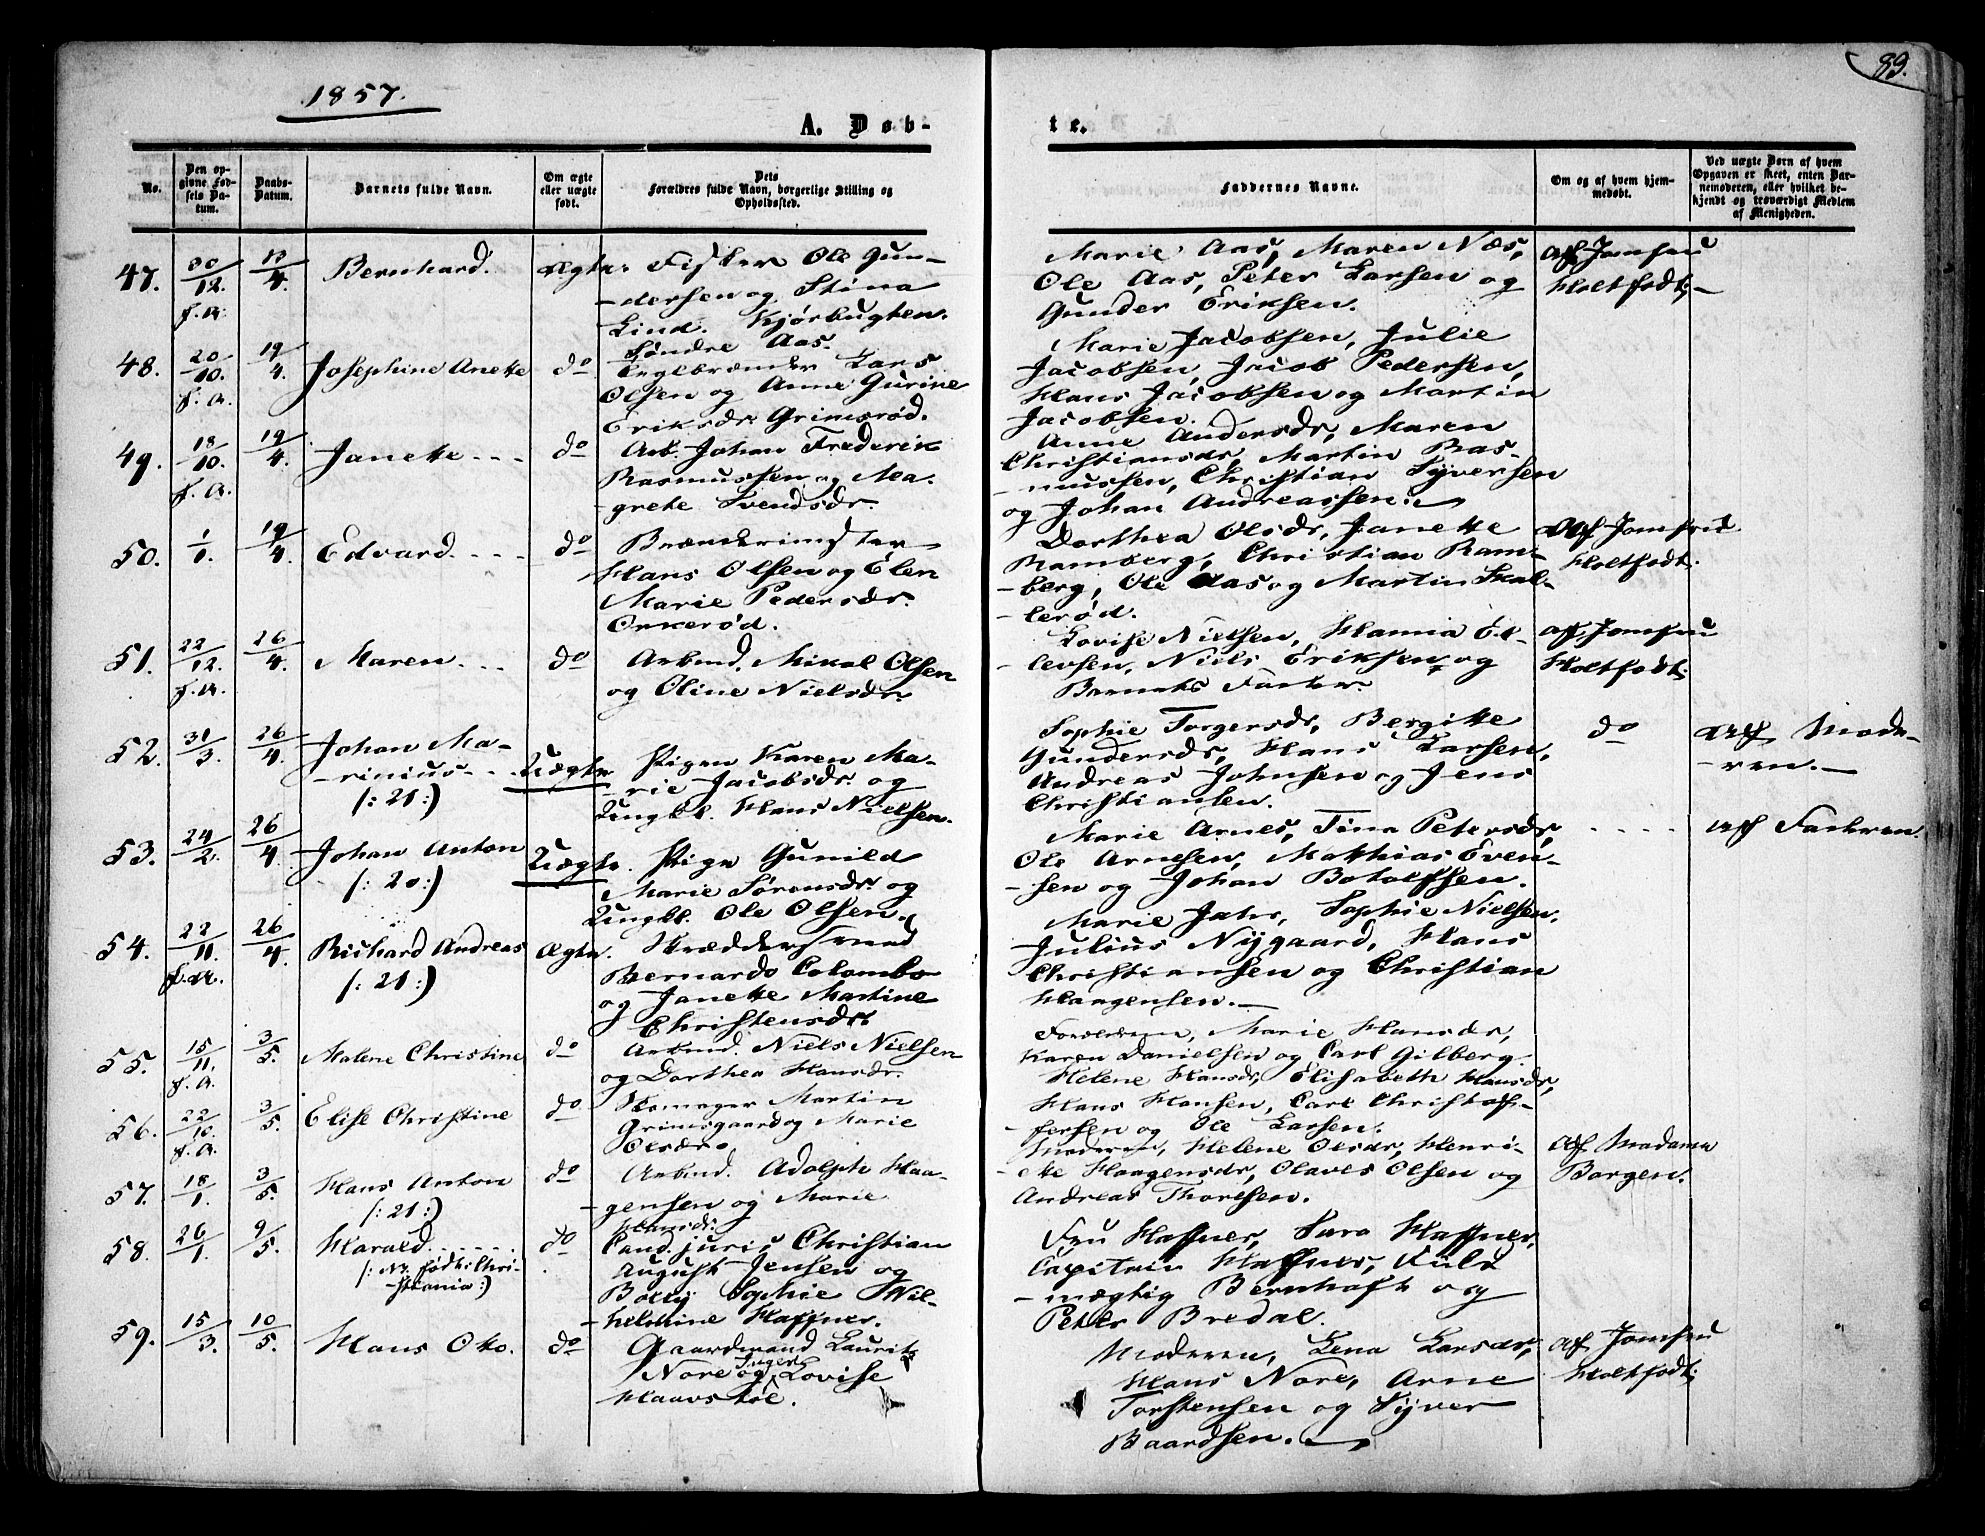 1857.
83.
A. Døb-
te.
No.
Den op-
givne Fød-
sels Da-
tum.
Daabs-
Datum.
Barnets fulde Navn.
Om ægte
eller uægte
født.
Dets
Forældres fulde Navn, borgerlige Stilling og
Opholdssted.
Faddernes Navne.
Om og af hvem hjem-
medøbt.
Ved uægte Børn af hvem
Opgaven er skeet, enten Bar-
nemoderen, eller hvilket be-
kjendt og troværdigt Medlem
af Menigheden.
47. 30/12. f. A. 13/4. Bernhard. Ægte. Fisker Ole Gun-
dersen og Stina
Lind. Kjørbugten.
Søndre Aas.
Marie Aas, Maren Næs,
Ole Aas, Peter Larsen og
Gunder Eriksen.
af Jomfru
Holtfodt.
48. 20/10. f. A. 19/4. Josephine Anette do Teglbrænder Lars
Olsen og Anne Gurine
Eriksdr. Grimsrød.
Marie Jacobsen, Julie
Jacobsen, Jacob Pedersen,
Hans Jacobsen og Martin
Jacobsen.
49. 18/10. f. A. 19/4. Janette do Arb. Johan Frederik
Rasmussen og Ma-
grete Svendsdr.
Anne Andersdr, Maren
Christiansdr, Martin Ras-
mussen, Christian Syversen
og Johan Andreassen.
50. 1/1. 19/4. Edvard. do Brænderimster
Hans Olsen og Elen
Marie Pedersdr.
Orkerød.
Dorthea Olsdr, Janette
Ramberg, Christian Ram-
berg, Ole Aas og Martin Kal-
lerød.
Af Jomfru
Holtfodt.
51. 22/12. f. A. 26/4. Maren do Arbmd. Mikal Olsen
og Oline Nielsdr.
Lovise Nielsen, Hannia El-
levsen, Niels Eriksen og
Barnets Fader.
af Jomfru
Holtfodt.
52. 31/3. 26/4. Johan Ma-
rinius
(: 21 :)
Uægte Pigen Karen Ma-
rie Jacobsdr. og
Ungkl. Hans Nielsen.
Sophie Torgersdr, Bergitte
Gundersdr, Hans Larsen,
Andreas Johnsen og Jens
Christiansen.
do
Af Mode-
ren.
53. 24/2. 26/4. Johan Anton
(: 20 :)
Uægte. Pige Gunild
Marie Sørensdr. og
Ungkl. Ole Olsen.
Marie Arnes, Tina Petersdr,
Ole Arnesen, Matthias Even-
sen og Johan Botolfsen.
af Faderen.
54. 22/11. f. A. 26/4. Richard Andreas
(: 21 :)
Ægte. Skræddersvend
Bernardo Colombo
og Janette Martine
Christensdr.
Marie Jahr, Sophie Nielsen,
Julius Nygaard, Hans
Christiansen og Christian
Haagensen.
55. 15/11. f. A. 3/5. Malene Christine do Arbmd. Niels Nielsen
og Dorthea Hansdr.
Forældrene, Marie Hansdr,
Karen Danielsen og Carl Gilberg.
56. 22/10. f. A. 3/5. Elise Christine do Skomager Martin
Grimsgaard og Marie
Olsdr.
Helene Hansdr, Elisabeth Hansdr,
Hans Hansen, Carl Christof-
fersen og Ole Larsen.
57. 18/1. 3/5. Hans Anton
(: 21 :)
do Arbmd. Adolph Haa-
gensen og Marie
Hansdr.
Moderen, Helene Olsdr, Henri-
ette Haagensdr, Olaves Olsen og
Andreas Thoresen.
Af Madame
Borgen.
58. 26/1. 9/5. Harald
(: No. født i Chri-
stiania :)
do Cand. juris Christian
August Jensen og
Bolly Sophie Wil-
helmine Haffner.
Fru Haffner, Sara Haffner,
Capitain Haffner, Fuld-
mægtig Bernhoft og
Peter Bredal.
59. 15/3. 10/5. Hans Oto. do Gaardmand Laurits
Nore og Inger Lovise
Haavstøl.
Moderen, Lena Larsdr,
Hans Nore, Arne
Torstensen og Syver
Baardsen.
af Jomfru
Holtfodt.